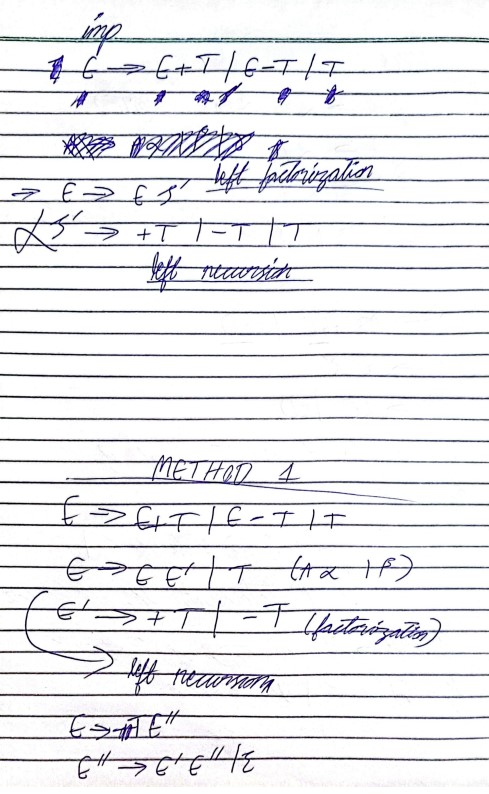 imp
E → E+T | E-T | T
left factorization
→ E → E S'
S' → +T | -T | T
left recursion
METHOD 1
E → E+T | E-T | T
E → E E' | T (Aα | β)
E' → +T | -T (factorization)
left recursion
E → TE''
E'' → E' E'' | ε